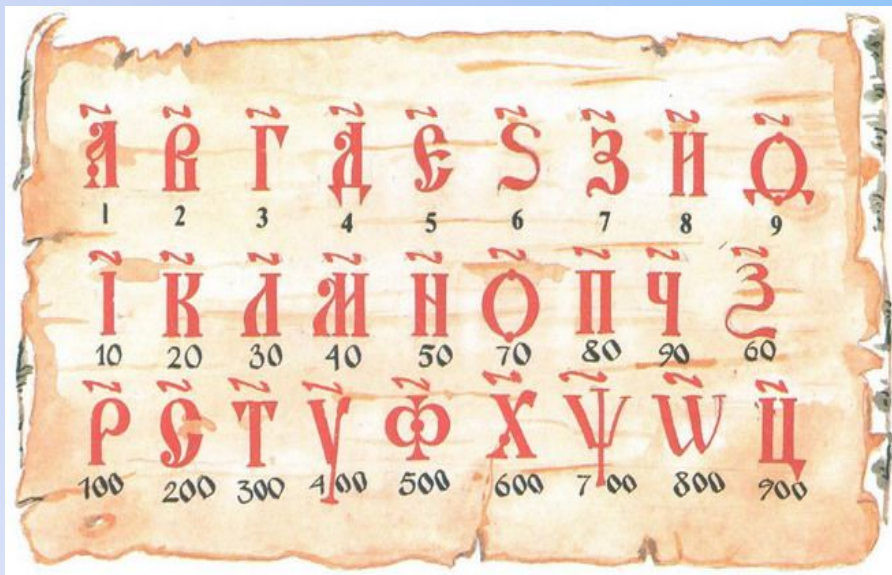 А҃ В҃ Г҃ Д҃ Є҃ Ѕ҃ З҃ И҃ Ѳ҃
1 2 3 4 5 6 7 8 9
І҃ К҃ Л҃ М҃ Н҃ О҃ П҃ Ч҃ Ѯ҃
10 20 30 40 50 70 80 90 60
Р҃ С҃ Т҃ У҃ Ф҃ Х҃ Ѱ҃ Ѡ҃ Ц҃
100 200 300 400 500 600 700 800 900